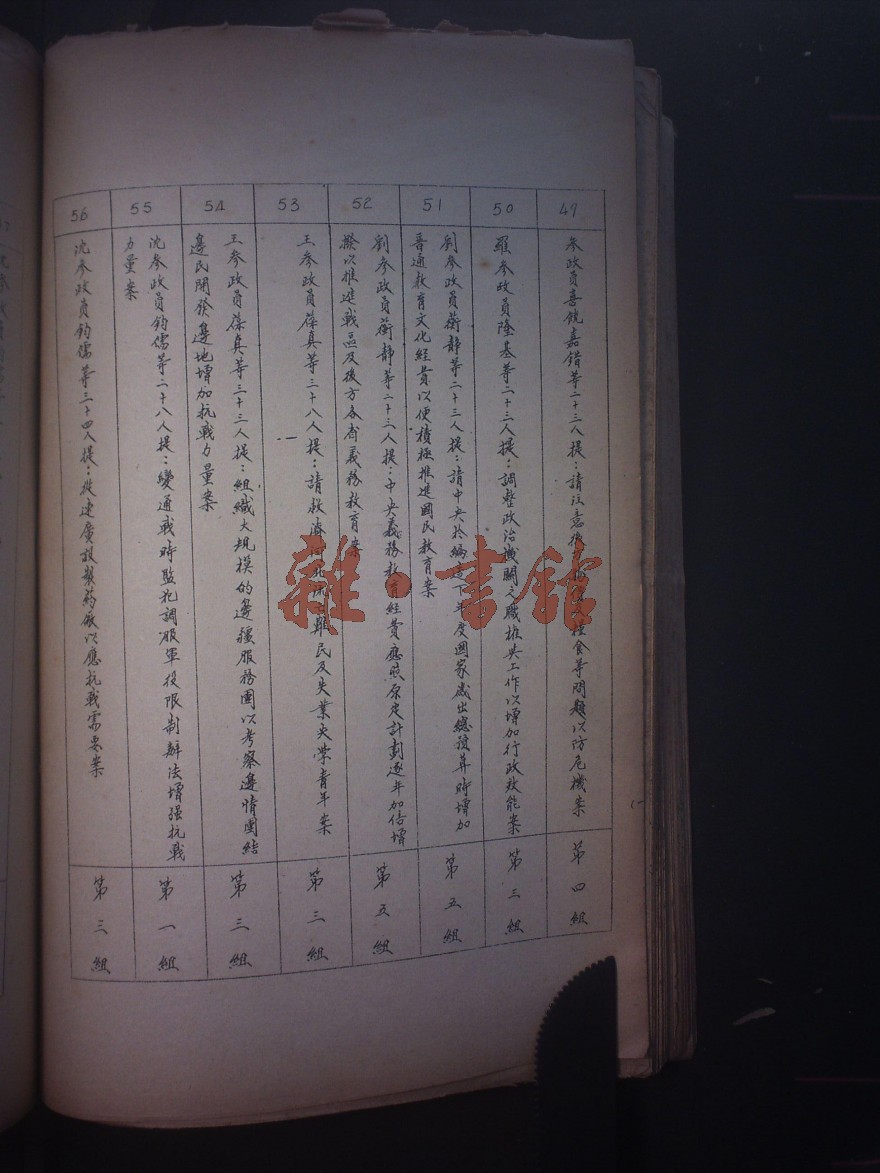 49
參政員喜饒嘉錯等二十三人提:請注意後糧食等問題以防危機案
第四組
50
羅參政員隆基等二十三人提:調整政治機關之職權與工作以增加行政效能案
第三組
51
劉參政員蘅靜等二十三人提:請中央於編造下年度國家歲出總預算時增加
普通教育文化經費以便積極推進國民教育案
第五組
52
劉參政員蘅靜等二十三人提:中央義務教育經費應照原定計劃逐年加倍增
撥以推進戰區及後方各省義務教育案
第五組
53
王參政員葆真等三十八人提:請救濟河北難民及失業失學青年案
第三組
54
王參政員葆真等三十三人提:組織大規模的邊疆服務團以考察邊情團結
邊民開發邊地增加抗戰力量案
第三組
55
沈參政員鈞儒等二十八人提:變通戰時監犯調服軍役限制辦法增强抗戰
力量案
第一組
56
沈參政員鈞儒等三十四人提:從速廣設製葯廠以應抗戰需要案
第三組
雜·書館